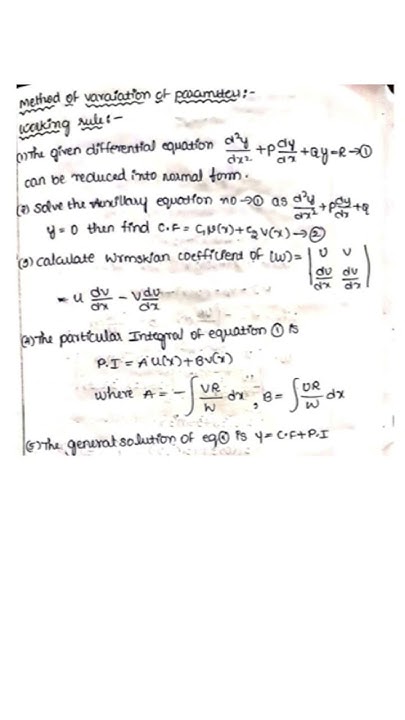 Method of varaiation of parameters:-
Working rule:-
(1) The given differential equation d²y/dx² + P dy/dx + Qy = R → ①
can be reduced into normal form.
(2) Solve the Auxillary equation no → ① as d²y/dx² + P dy/dx + Q
y = 0 then find C.F = C₁U(x) + C₂V(x) → ②
(3) calculate Wrmskian coefficient of (W) = | U V |
| du/dx dv/dx |
= u dv/dx - v du/dx
(4) The particular Integral of equation ① is
P.I = A U(x) + B V(x)
where A = - ∫ VR/W dx, B = ∫ UR/W dx
(5) The general solution of eq ① is y = C.F + P.I